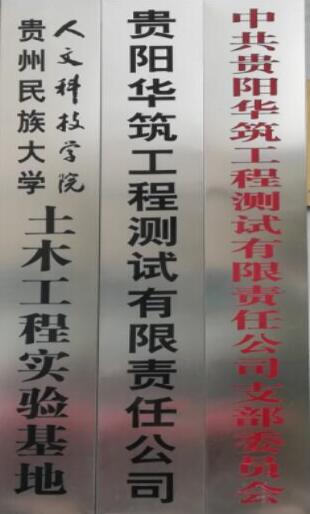 中共贵阳华筑工程测试有限责任公司支部委员会
贵阳华筑工程测试有限责任公司
贵州民族大学
人文科技学院
土木工程实验基地